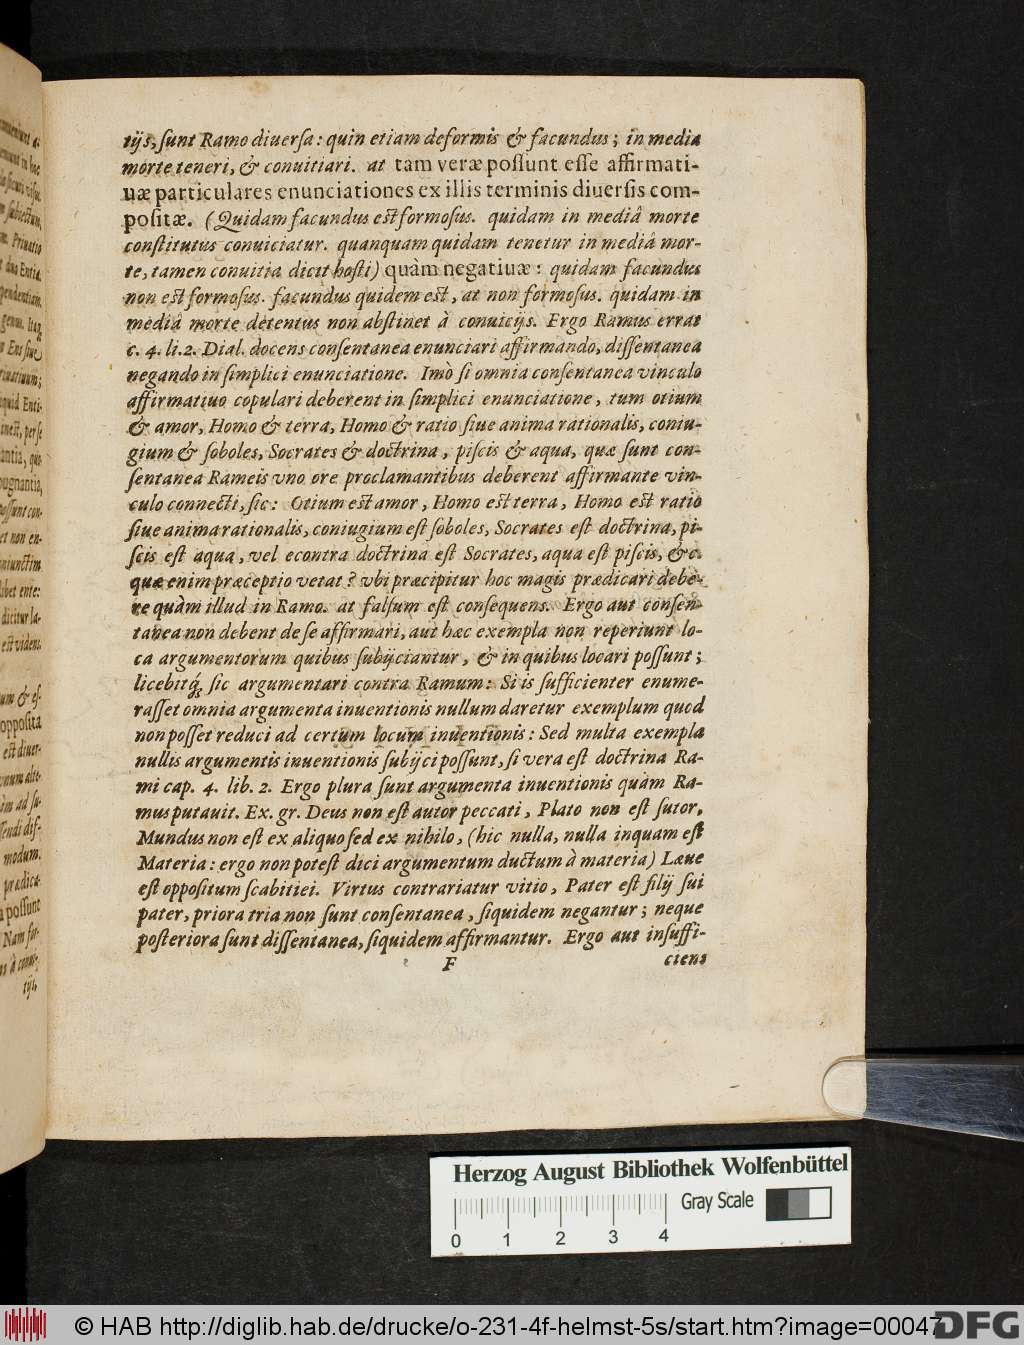 tijs, sunt Ramo diuersa: quin etiam deformis & facundus; in media
morte teneri, & conuitiari. at tam veræ possunt esse affirmati-
uæ particulares enunciationes ex illis terminis diuersis com-
positæ. (Quidam facundus est formosus. quidam in mediâ morte
constitutus conuiciatur. quanquam quidam tenetur in mediâ mor-
te, tamen conuitia dicit hosti) quàm negatiuæ: quidam facundus
non est formosus. facundus quidem est, at non formosus. quidam in
mediâ morte detentus non abstinet à conuicijs. Ergo Ramus errat
c. 4. li. 2. Dial. docens consentanea enunciari affirmando, dissentanea
negando in simplici enunciatione. Imò si omnia consentanea vinculo
affirmatiuo copulari deberent in simplici enunciatione, tum otium
& amor, Homo & terra, Homo & ratio siue anima rationalis, coniu-
gium & soboles, Socrates & doctrina, piscis & aqua, quæ sunt con-
sentanea Rameis vno ore proclamantibus deberent affirmante vin-
culo connecti, sic: Otium est amor, Homo est terra, Homo est ratio
siue anima rationalis, coniugium est soboles, Socrates est doctrina, pi-
scis est aqua, vel econtra doctrina est Socrates, aqua est piscis, &c.
quæ enim præceptio vetat? vbi præcipitur hoc magis prædicari debe-
re quàm illud in Ramo. at falsum est consequens. Ergo aut consen-
tanea non debent de se affirmari, aut hæc exempla non reperiunt lo-
ca argumentorum quibus subijciantur, & in quibus locari possunt;
licebitq́; sic argumentari contra Ramum: Si is sufficienter enume-
rasset omnia argumenta inuentionis nullum daretur exemplum quod
non posset reduci ad certum locum inuentionis: Sed multa exempla
nullis argumentis inuentionis subijci possunt, si vera est doctrina Ra-
mi cap. 4. lib. 2. Ergo plura sunt argumenta inuentionis quàm Ra-
mus putauit. Ex. gr. Deus non est autor peccati, Plato non est sutor,
Mundus non est ex aliquo sed ex nihilo, (hic nulla, nulla inquam est
Materia: ergo non potest dici argumentum ductum à materia) Læue
est oppositum scabitiei. Virtus contrariatur vitio, Pater est filij sui
pater, priora tria non sunt consentanea, siquidem negantur; neque
posteriora sunt dissentanea, siquidem affirmantur. Ergo aut insuffi-
F
ciens
Herzog August Bibliothek Wolfenbüttel
Gray Scale
0 1 2 3 4
© HAB http://diglib.hab.de/drucke/o-231-4f-helmst-5s/start.htm?image=00047
DFG